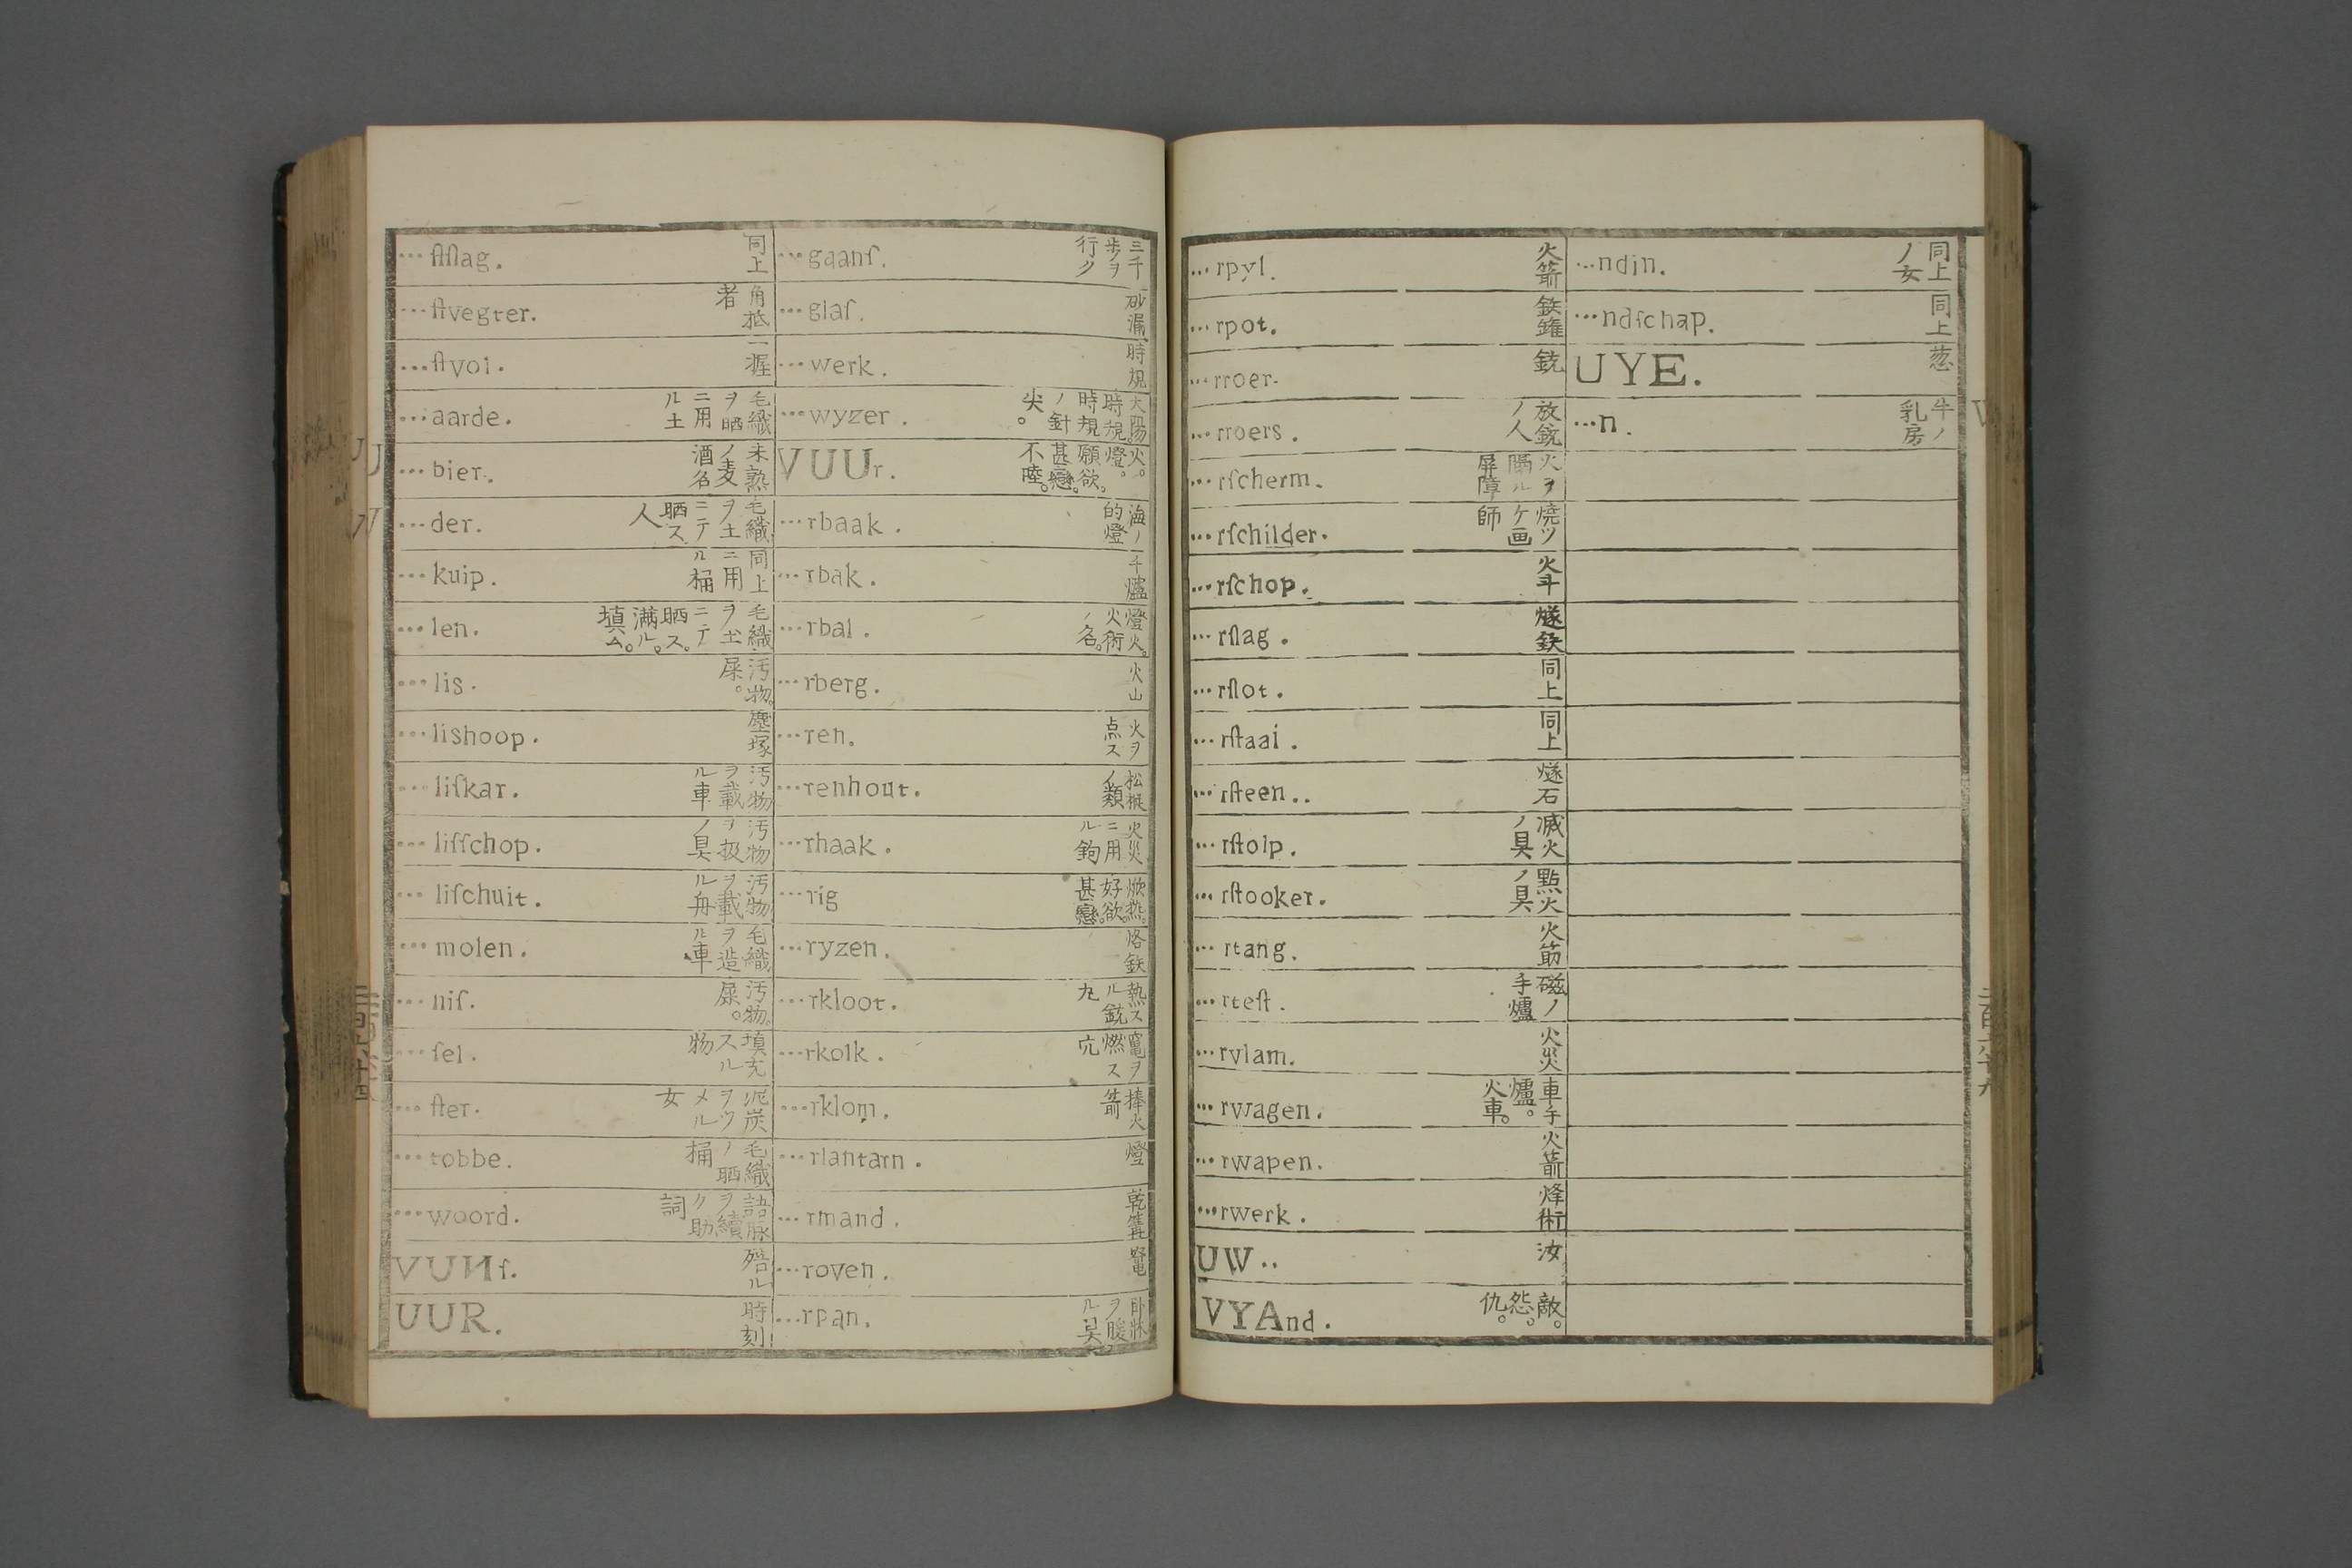 …ſtſlag. 同上
…ſtvegter. 角抵者
…ſtvol. 一握
…aarde. 毛織ヲ晒ニ用ル土
…bier. 未熟ノ麦酒名
…der. 毛織ヲ土ニテ晒ス人
…kuip. 同上ニ用ル桶
…len. 毛織ヲ土ニテ晒ス。満ル。填ム。
…lis. 汚物。屎。
…lishoop. 塵塚
…liſkar. 汚物ヲ載ル車
…liſſchop. 汚物ヲ扱ノ具
…liſchuit. 汚物ヲ載ル舟
…molen. 毛織ヲ造ル車
…niſ. 汚物。屎。
…ſel. 填充スル物
…ſter. 泥炭ヲツメル女
…tobbe. 毛織ノ晒桶
…woord. 語脉ヲ續ク助詞
VUNſ. 㱿ル
UUR. 時刻
…gaanſ. 三千歩ヲ行ク
…glaſ. 砂漏
…werk. 時規
…wyzer. 大陽時規。時規ノ針尖。
VUUr. 火。燈。願欲。甚戀。不睦。
…rbaak. 海ノ的燈
…rbak. 手爐
…rbal. 燈火。火術ノ名。
…rberg. 火山
…ren. 火ヲ点ス
…renhout. 松根ノ類
…rhaak. 火災ニ用ル鉤
…rig 燃熱。好欲。甚戀。
…ryzen. 烙鉄
…rkloot. 熱スル銃丸
…rkolk. 竃ヲ燃ス穴
…rklom. 棒火箭
…rlantarn. 燈
…rmand. 乾篝
…roven. 竈
…rpan. 卧牀ヲ暖ル具
…rpyl. 火箭
…rpot. 鉄鑵
…rroer. 銃
…rroers. 放銃ノ人
…rſcherm. 火ヲ隔ル屏障
…rſchilder. 焼ツケ画師
…rſchop. 火斗
…rſlag. 燧鉄
…rſlot. 同上
…rſtaai. 同上
…rſteen.. 燧石
…rſtolp. 滅火ノ具
…rſtooker. 點火ノ具
…rtang. 火筯
…rteſt. 磁ノ手爐
…rvlam. 火炎
…rwagen. 車手爐。火車。
…rwapen. 火箭
…rwerk. 烽術
UW.. 汝
VYAnd. 敵。怨。仇。
…ndin. 同上ノ女
…ndſchap. 同上
UYE. 葱
…n. 牛ノ乳房